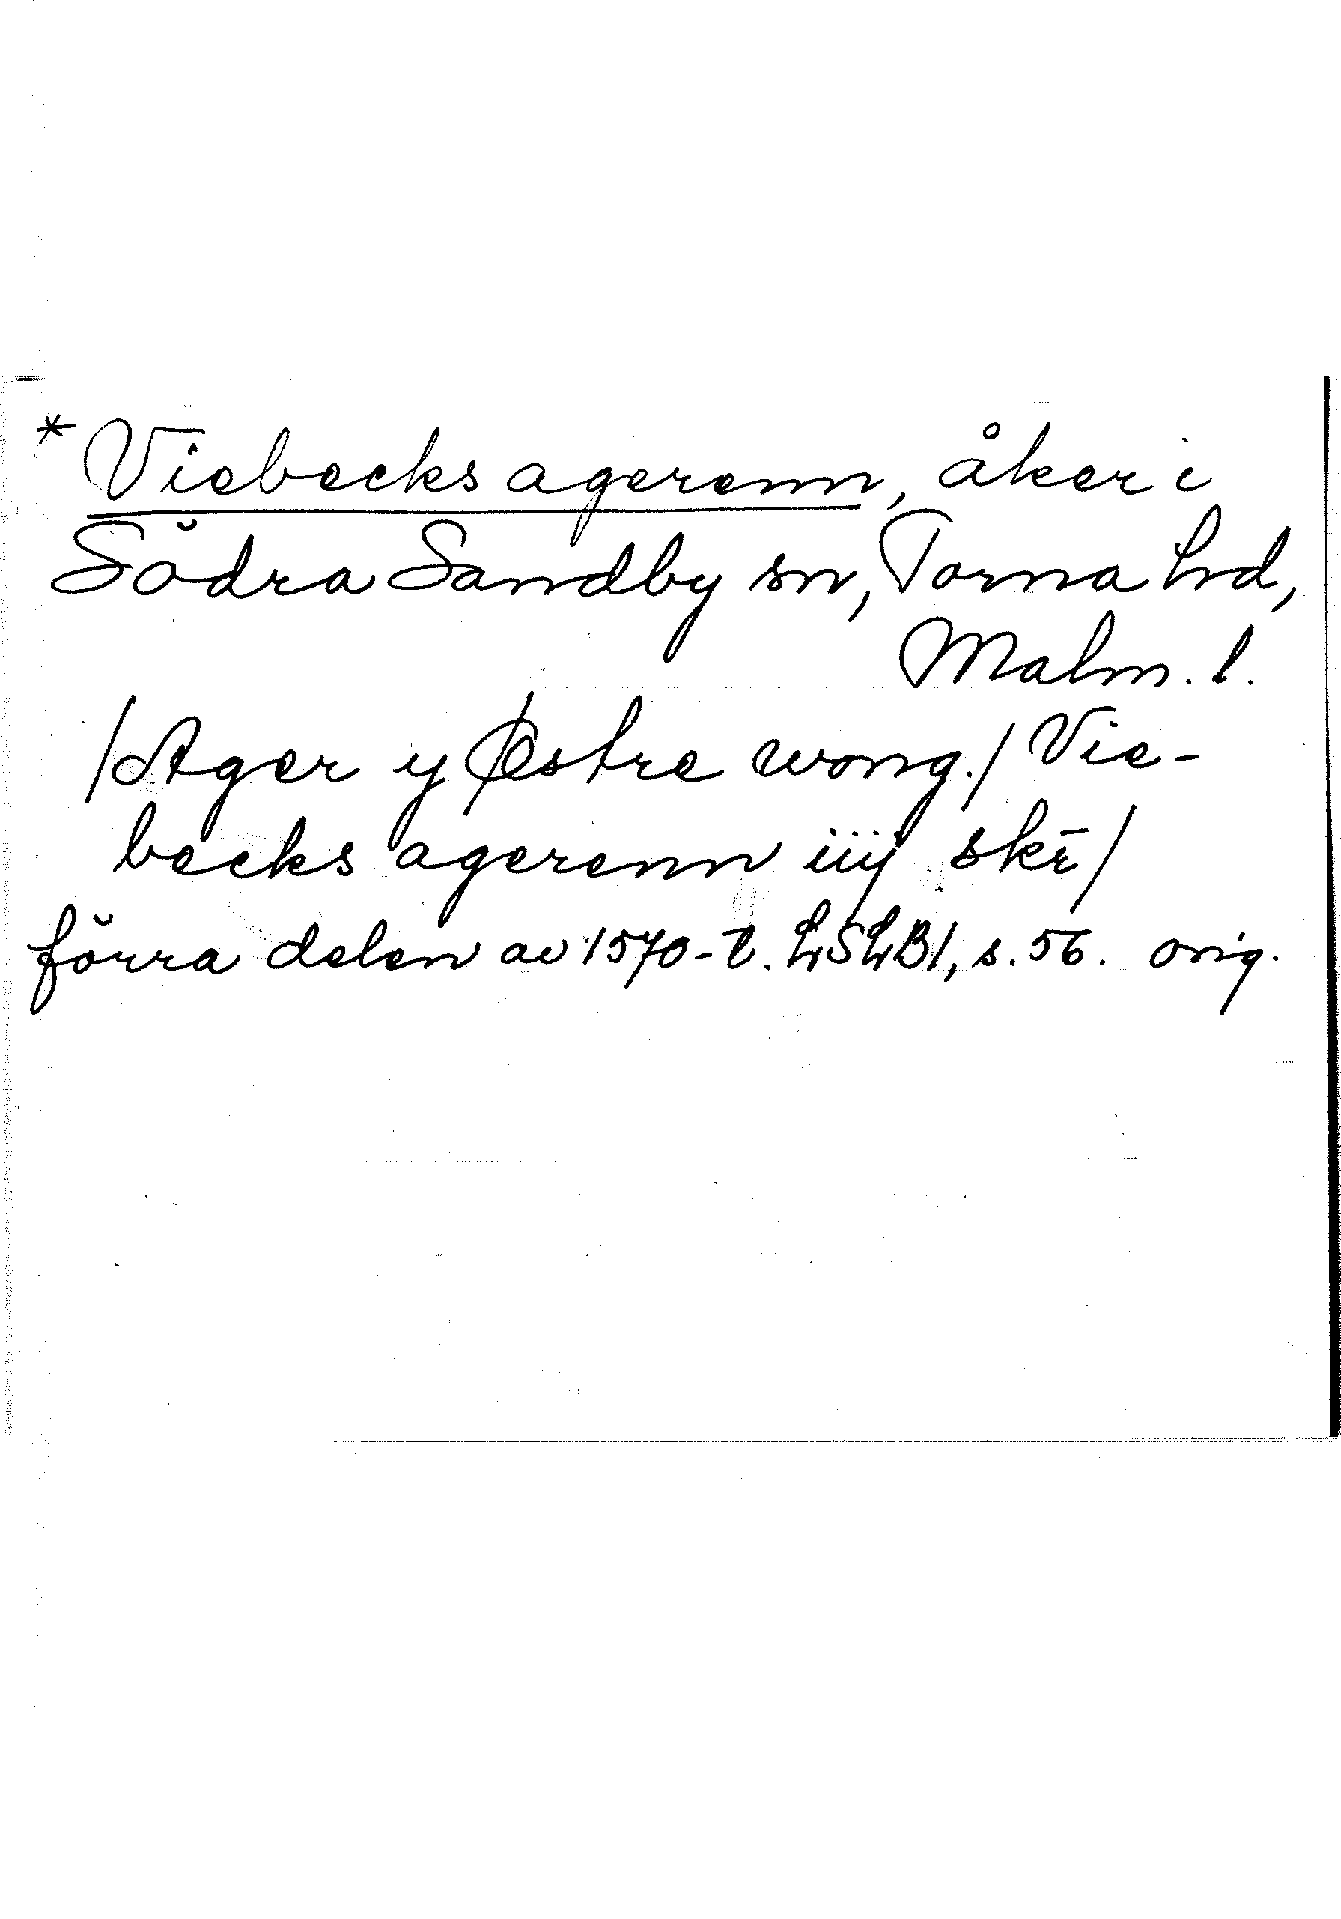 * Viebecks agerenn, åker i
Södra Sandby sn, Torna hd,
Malm. l.
/Ager y Østre wong./ Vie-
becks agerenn iiij skr̄/
förra delen av 1570-t. LSLB1, s. 56. orig.